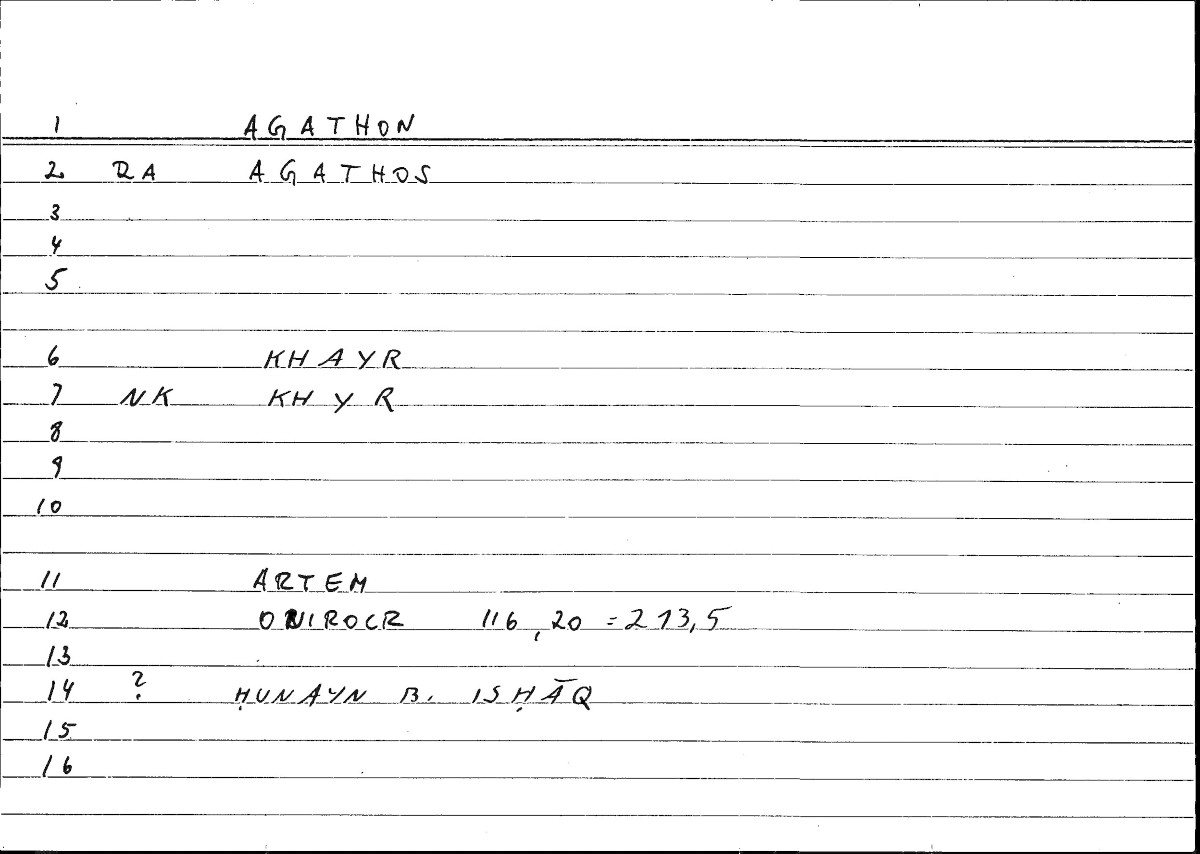 1 AGATHON
2 RA AGATHOS
3
4
5
6 KHAYR
7 NK KHYR
8
9
10
11 ARTEM
12 ONIROCR 116,20 = 213,5
13
14 ? ḤUNAYN B. ISḤĀQ
15
16